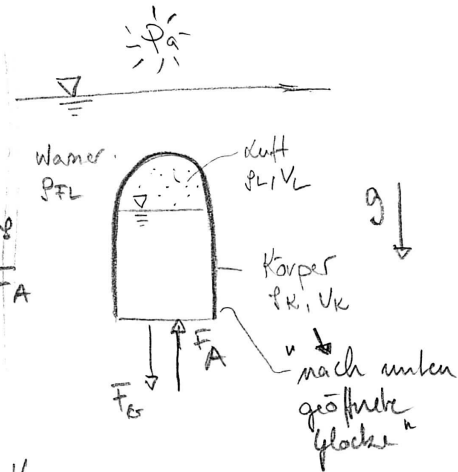 Pa
Wasser
ρFL
Luft
ρL, VL
g
A
Körper
ρK, VK
FA
FG
"nach unten
geöffnete
Glocke"